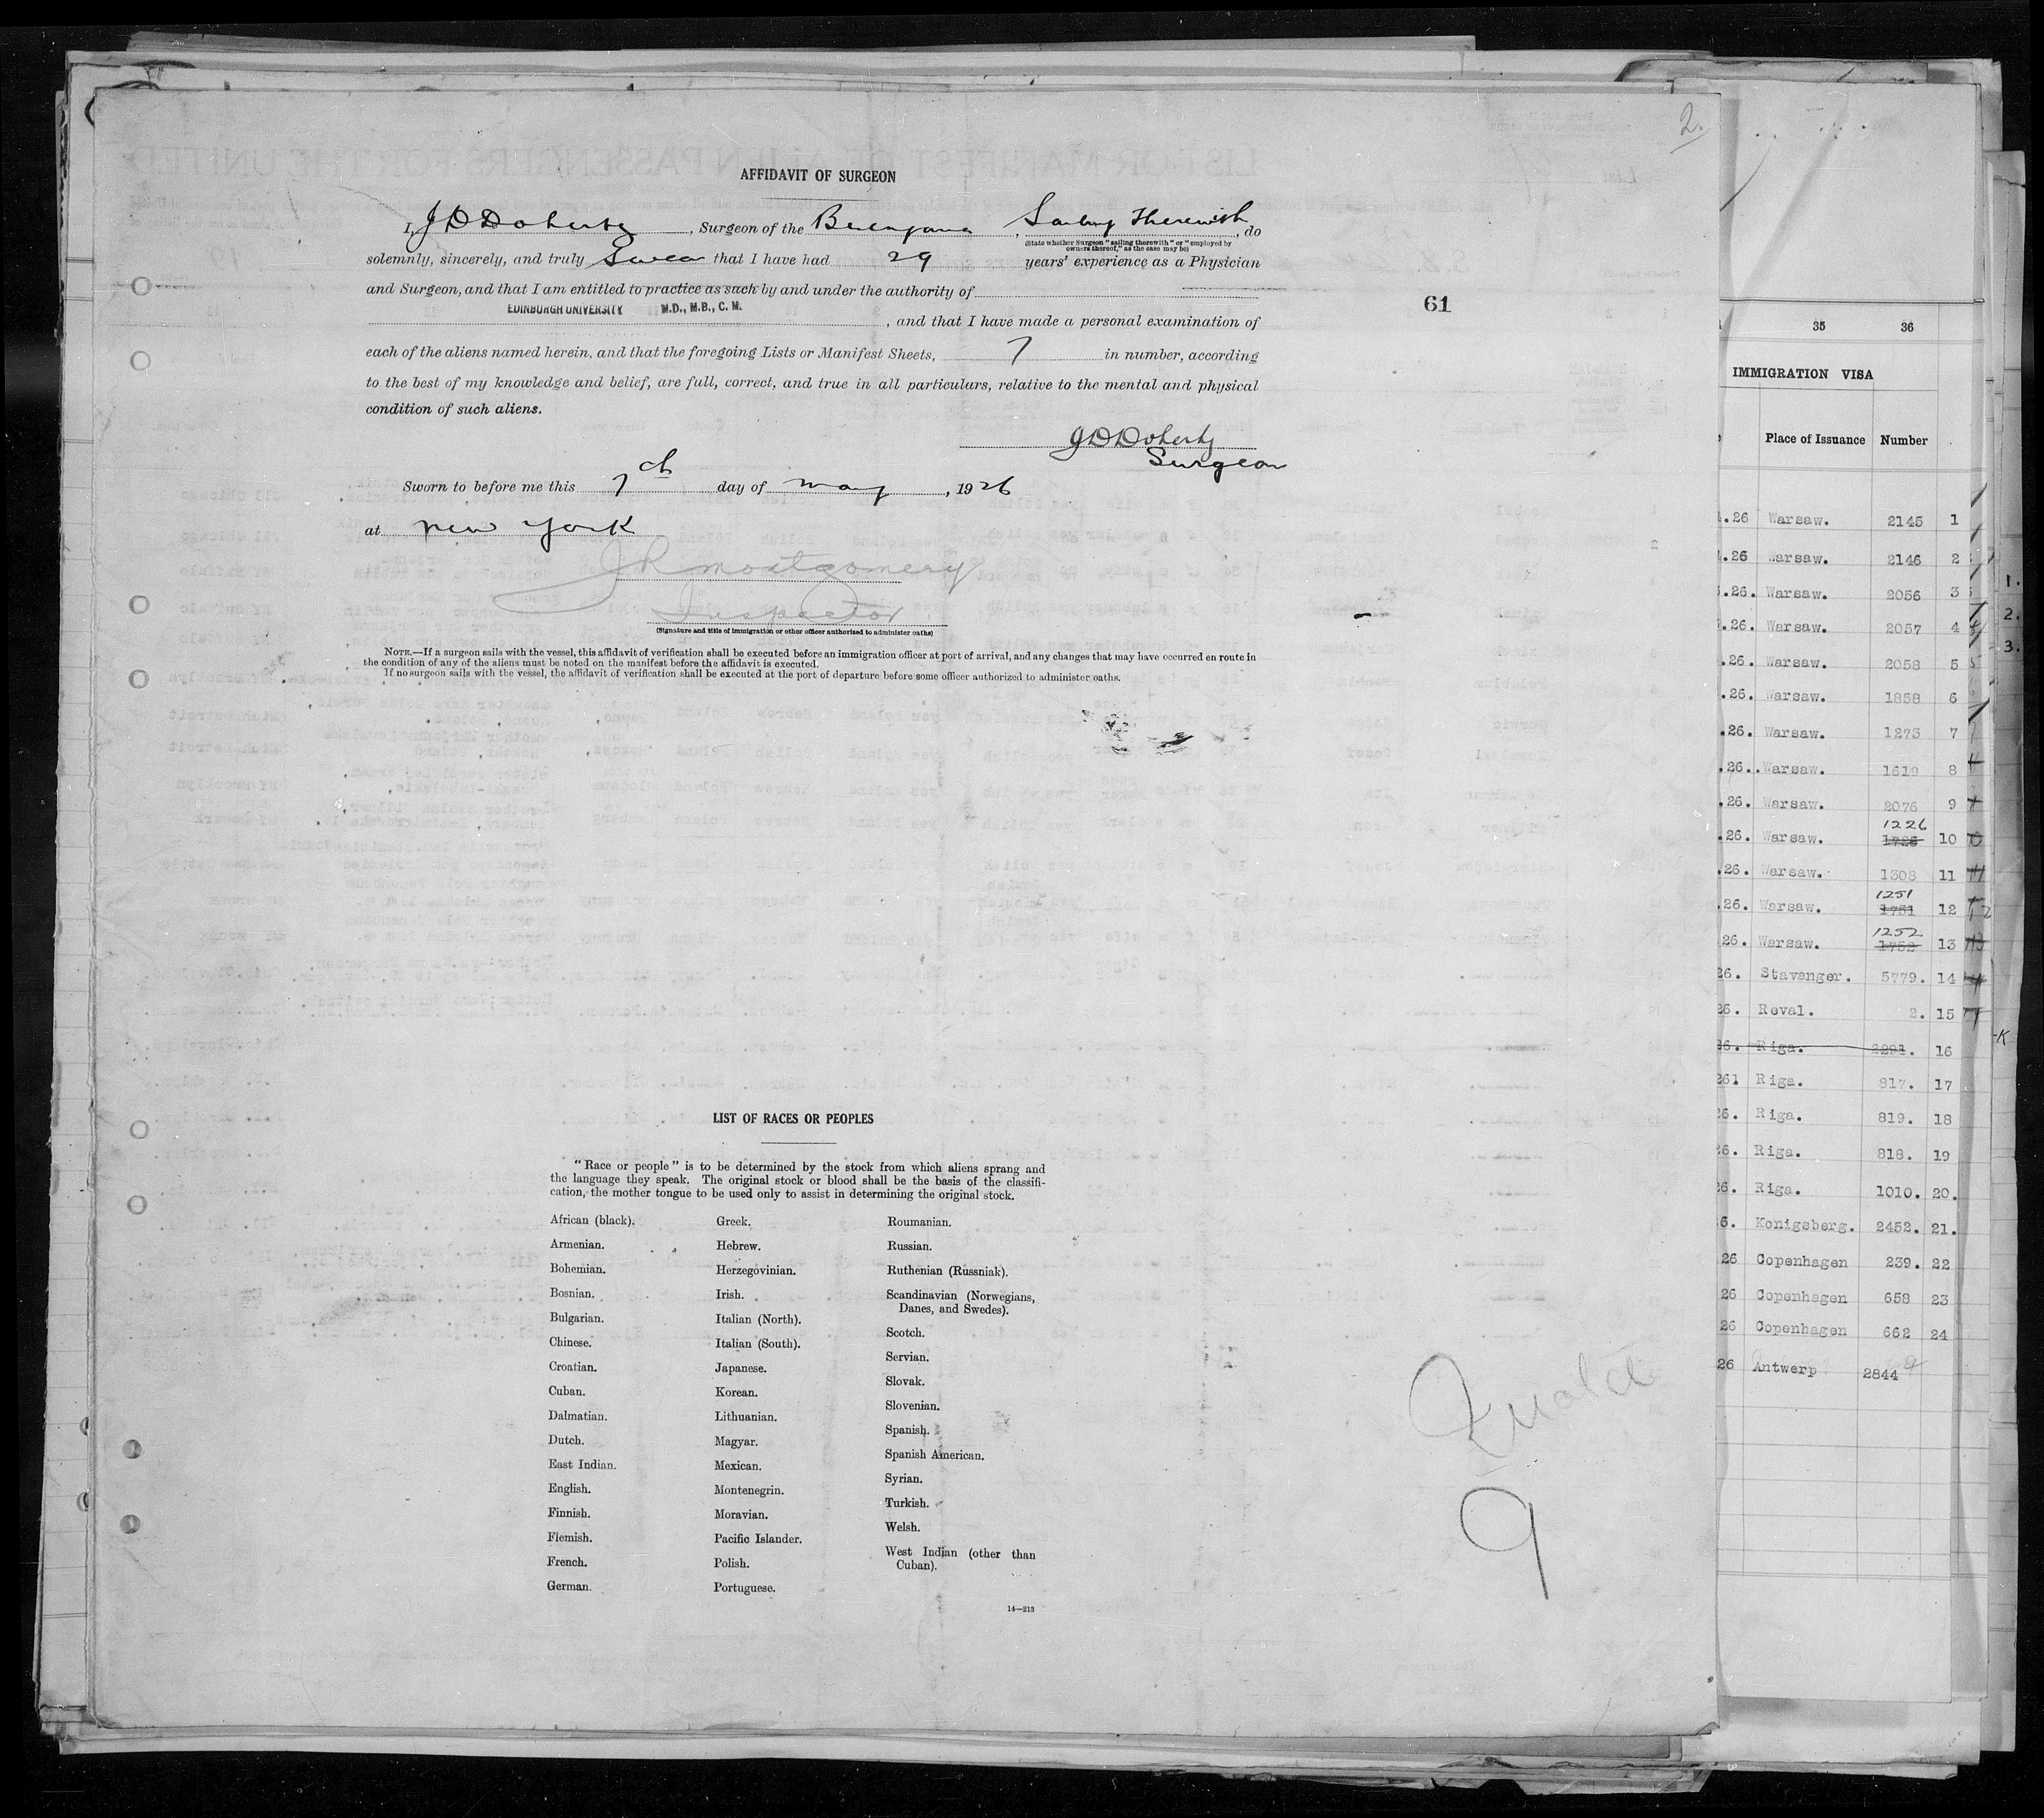 2.
AFFIDAVIT OF SURGEON
I, J D Doherty, Surgeon of the Berengaria, Sailing Therewith, do
(State whether Surgeon "sailing therewith" or "employed by
owners thereof," as the case may be)
solemnly, sincerely, and truly Swear that I have had 29 years' experience as a Physician
and Surgeon, and that I am entitled to practice as such by and under the authority of
EDINBURGH UNIVERSITY M.D., M.B., C.M.
, and that I have made a personal examination of
61
each of the aliens named herein, and that the foregoing Lists or Manifest Sheets, 7 in number, according
to the best of my knowledge and belief, are full, correct, and true in all particulars, relative to the mental and physical
condition of such aliens.
J D Doherty
Surgeon
Sworn to before me this 7th day of May, 1926
at New York
J R Montgomery
Inspector
(Signature and title of immigration or other officer authorized to administer oaths)
NOTE.—If a surgeon sails with the vessel, this affidavit of verification shall be executed before an immigration officer at port of arrival, and any changes that may have occurred en route in
the condition of any of the aliens must be noted on the manifest before the affidavit is executed.
If no surgeon sails with the vessel, the affidavit of verification shall be executed at the port of departure before some officer authorized to administer oaths.
LIST OF RACES OR PEOPLES
"Race or people" is to be determined by the stock from which aliens sprang and
the language they speak. The original stock or blood shall be the basis of the classifi-
cation, the mother tongue to be used only to assist in determining the original stock.
African (black).
Armenian.
Bohemian.
Bosnian.
Bulgarian.
Chinese.
Croatian.
Cuban.
Dalmatian.
Dutch.
East Indian.
English.
Finnish.
Flemish.
French.
German.
Greek.
Hebrew.
Herzegovinian.
Irish.
Italian (North).
Italian (South).
Japanese.
Korean.
Lithuanian.
Magyar.
Mexican.
Montenegrin.
Moravian.
Pacific Islander.
Polish.
Portuguese.
Roumanian.
Russian.
Ruthenian (Russniak).
Scandinavian (Norwegians,
Danes, and Swedes).
Scotch.
Servian.
Slovak.
Slovenian.
Spanish.
Spanish American.
Syrian.
Turkish.
Welsh.
West Indian (other than
Cuban).
14—213
9
35 36
IMMIGRATION VISA
Place of Issuance Number
.26 Warsaw. 2145 1
.26 Warsaw. 2146 2
.26. Warsaw. 2056 3
.26. Warsaw. 2057 4
.26. Warsaw. 2058 5
.26. Warsaw. 1858 6
.26. Warsaw. 1273 7
.26. Warsaw. 1619 8
.26. Warsaw. 2076 9
1226
.26. Warsaw. 1726 10
.26. Warsaw. 1308 11
1251
.26. Warsaw. 1751 12
1252
26. Warsaw. 1752 13
26. Stavanger. 5779. 14
26. Reval. 2. 15
26. Riga. 2291. 16
261 Riga. 817. 17
26. Riga. 819. 18
26. Riga. 818. 19
26. Riga. 1010. 20.
Konigsberg. 2452. 21.
26 Copenhagen 239. 22
26 Copenhagen 658 23
26 Copenhagen 662 24
26 Antwerp 2844
1.
2.
3.
-K